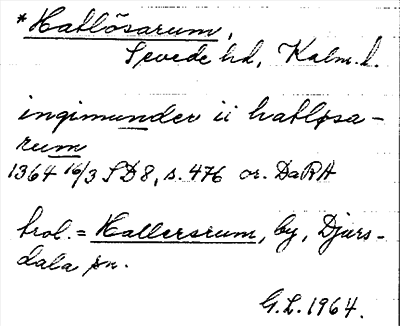 *Hatlösarum,
Sevede hd, Kalm. l.
ingimunder ii hatløsa-
rum
1364 16/3 SD 8, s. 476 or. DaRA
trol. = Hallersrum, by, Djurs-
dala sn.
G.L. 1964.